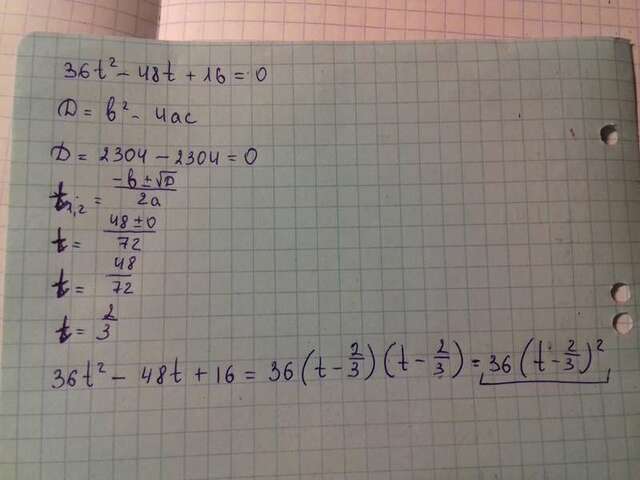 36t² - 48t + 16 = 0
D = в² - 4ас
D = 2304 - 2304 = 0
t₁,₂ = (-в ± √D) / 2а
t = (48 ± 0) / 72
t = 48 / 72
t = 2 / 3
36t² - 48t + 16 = 36(t - 2/3)(t - 2/3) = 36(t - 2/3)²